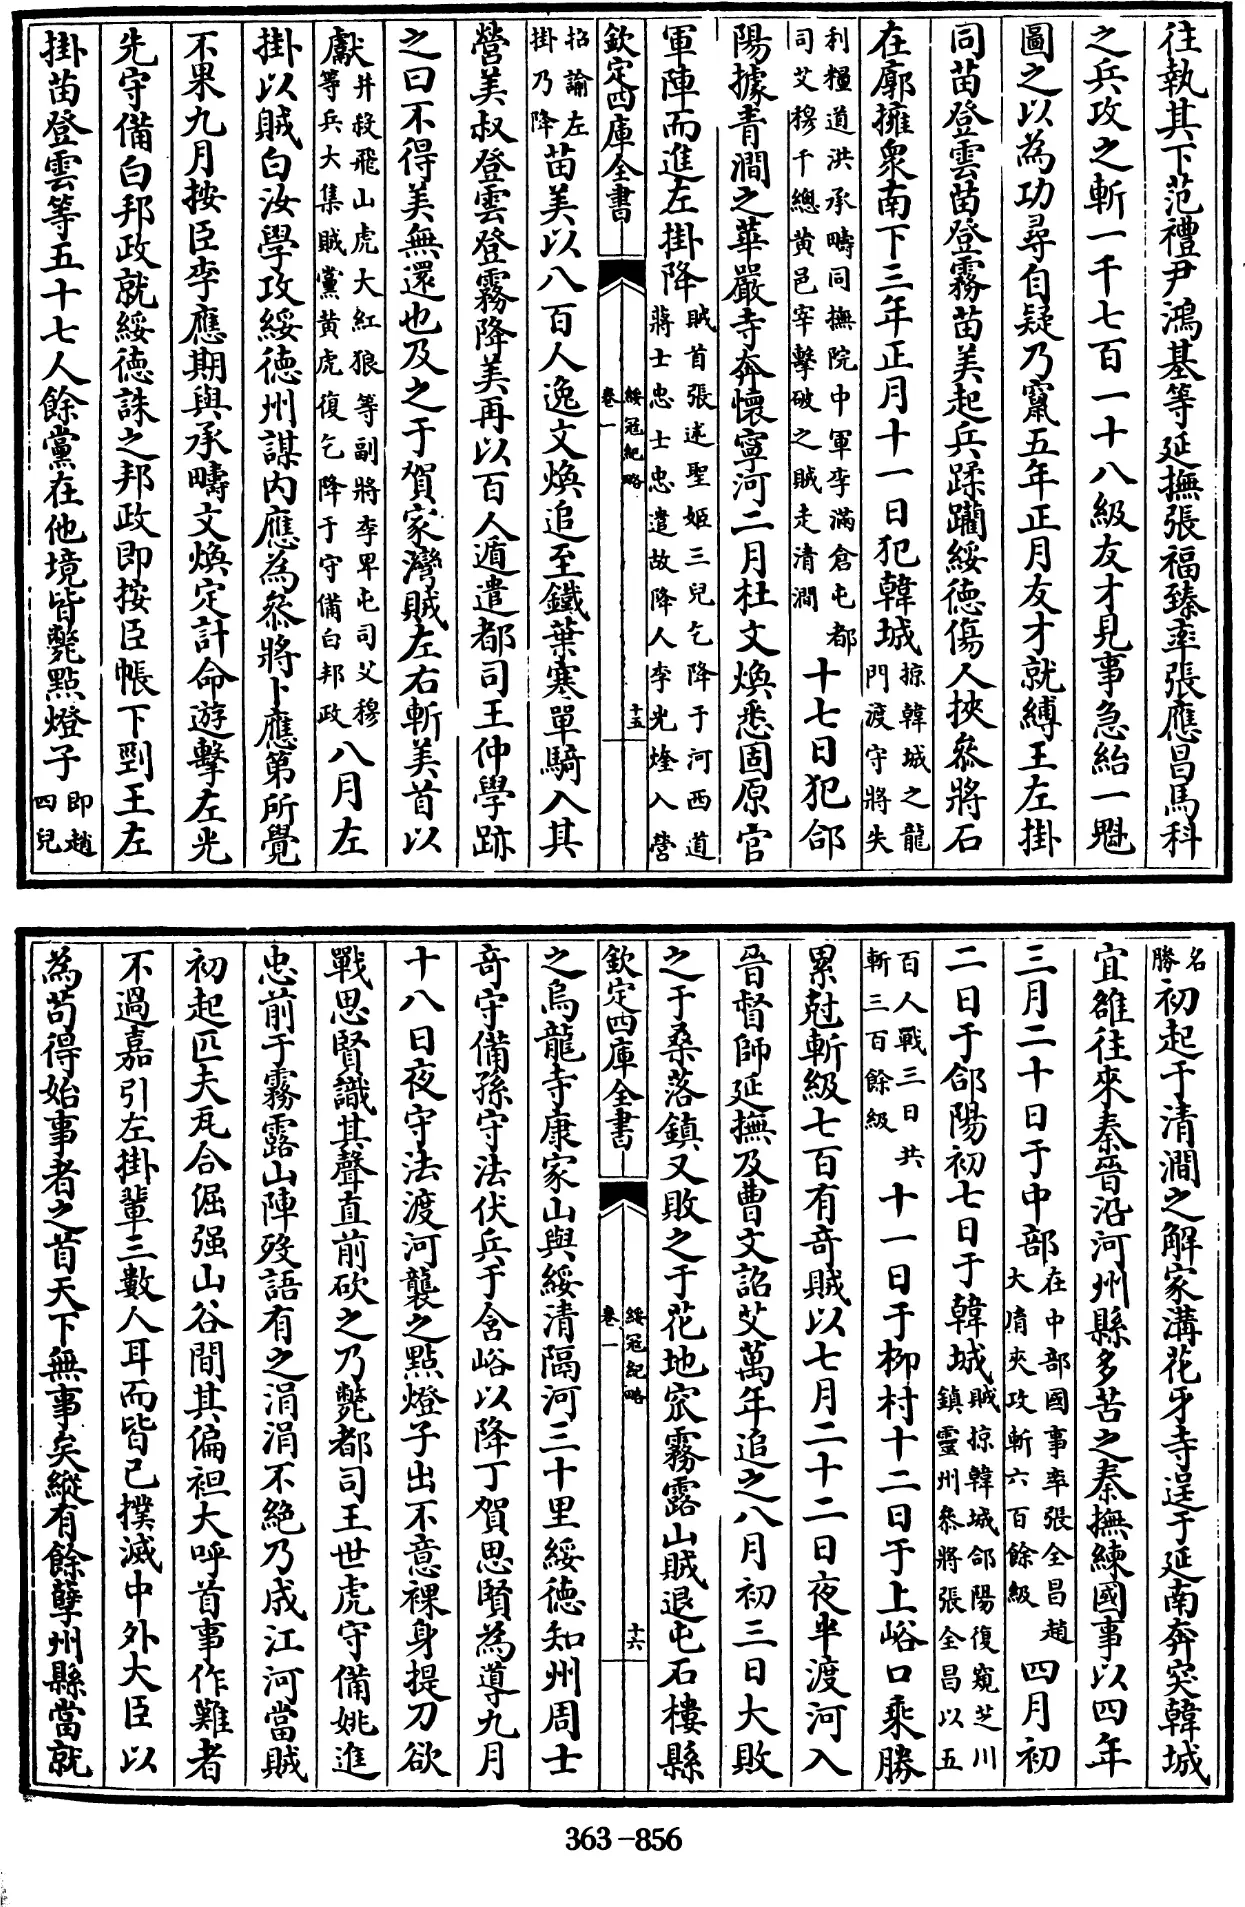 往執其下范禮尹鴻基等延撫張福臻率張應昌馬科
之兵攻之斬一千七百一十八級友才見事急紿一魁
圖之以為功尋自疑乃竄五年正月友才就縛王左掛
同苗登雲苗登霧苗美起兵蹂躪綏德傷人挾叅將石
在廓擁衆南下三年正月十一日犯韓城掠韓城之龍門渡守將失
利糧道洪承疇同撫院中軍李滿倉屯都司艾穆千總黄邑宰擊破之賊走清澗十七日犯郃
陽據青澗之華嚴寺奔懷寧河二月杜文煥悉固原官
軍陣而進左掛降賊首張述聖姬三兒乞降于河西道蔣士忠士忠遣故降人李光烽入營
欽定四庫全書
綏冦紀略
卷一
十五
招諭左掛乃降苗美以八百人逸文煥追至鐵葉寒單騎入其
營美叔登雲登霧降美再以百人遁遣都司王仲學跡
之曰不得美無還也及之于賀家灣賊左右斬美首以
獻并殺飛山虎大紅狼等副將李卑屯司艾穆等兵大集賊黨黄虎復乞降于守備白邦政八月左
掛以賊白汝學攻綏德州謀内應為叅將卜應第所覺
不果九月按臣李應期與承疇文煥定計命遊擊左光
先守備白邦政就綏德誅之邦政即按臣帳下剄王左
掛苗登雲等五十七人餘黨在他境皆斃點燈子即趙四兒
名勝初起于清澗之解家溝花牙寺逞于延南奔突韓城
宜雒往來秦晉沿河州縣多苦之秦撫練國事以四年
三月二十日于中部在中部國事率張全昌趙大㣧夾攻斬六百餘級四月初
二日于郃陽初七日于韓城賊掠韓城郃陽復窺芝川鎮靈州叅將張全昌以五
百人戰三日共斬三百餘級十一日于柳村十二日于上峪口乘勝
累尅斬級七百有奇賊以七月二十二日夜半渡河入
晉督師延撫及曹文詔艾萬年追之八月初三日大敗
之于桑落鎮又敗之于花地窊霧露山賊退屯石樓縣
欽定四庫全書
綏冦紀略
卷一
十六
之烏龍寺康家山與綏清隔河三十里綏德知州周士
奇守備孫守法伏兵于含峪以降丁賀思賢為導九月
十八日夜守法渡河襲之點燈子出不意裸身提刀欲
戰思賢識其聲直前砍之乃斃都司王世虎守備姚進
忠前于霧露山陣歿語有之涓涓不絶乃成江河當賊
初起匹夫瓦合倔强山谷間其偏袒大呼首事作難者
不過嘉引左掛輩三數人耳而皆已撲滅中外大臣以
為苟得始事者之首天下無事矣縱有餘孽州縣當就
363-856